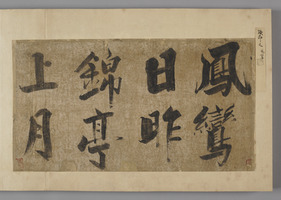 鳳鸞
日昨
錦亭
上月